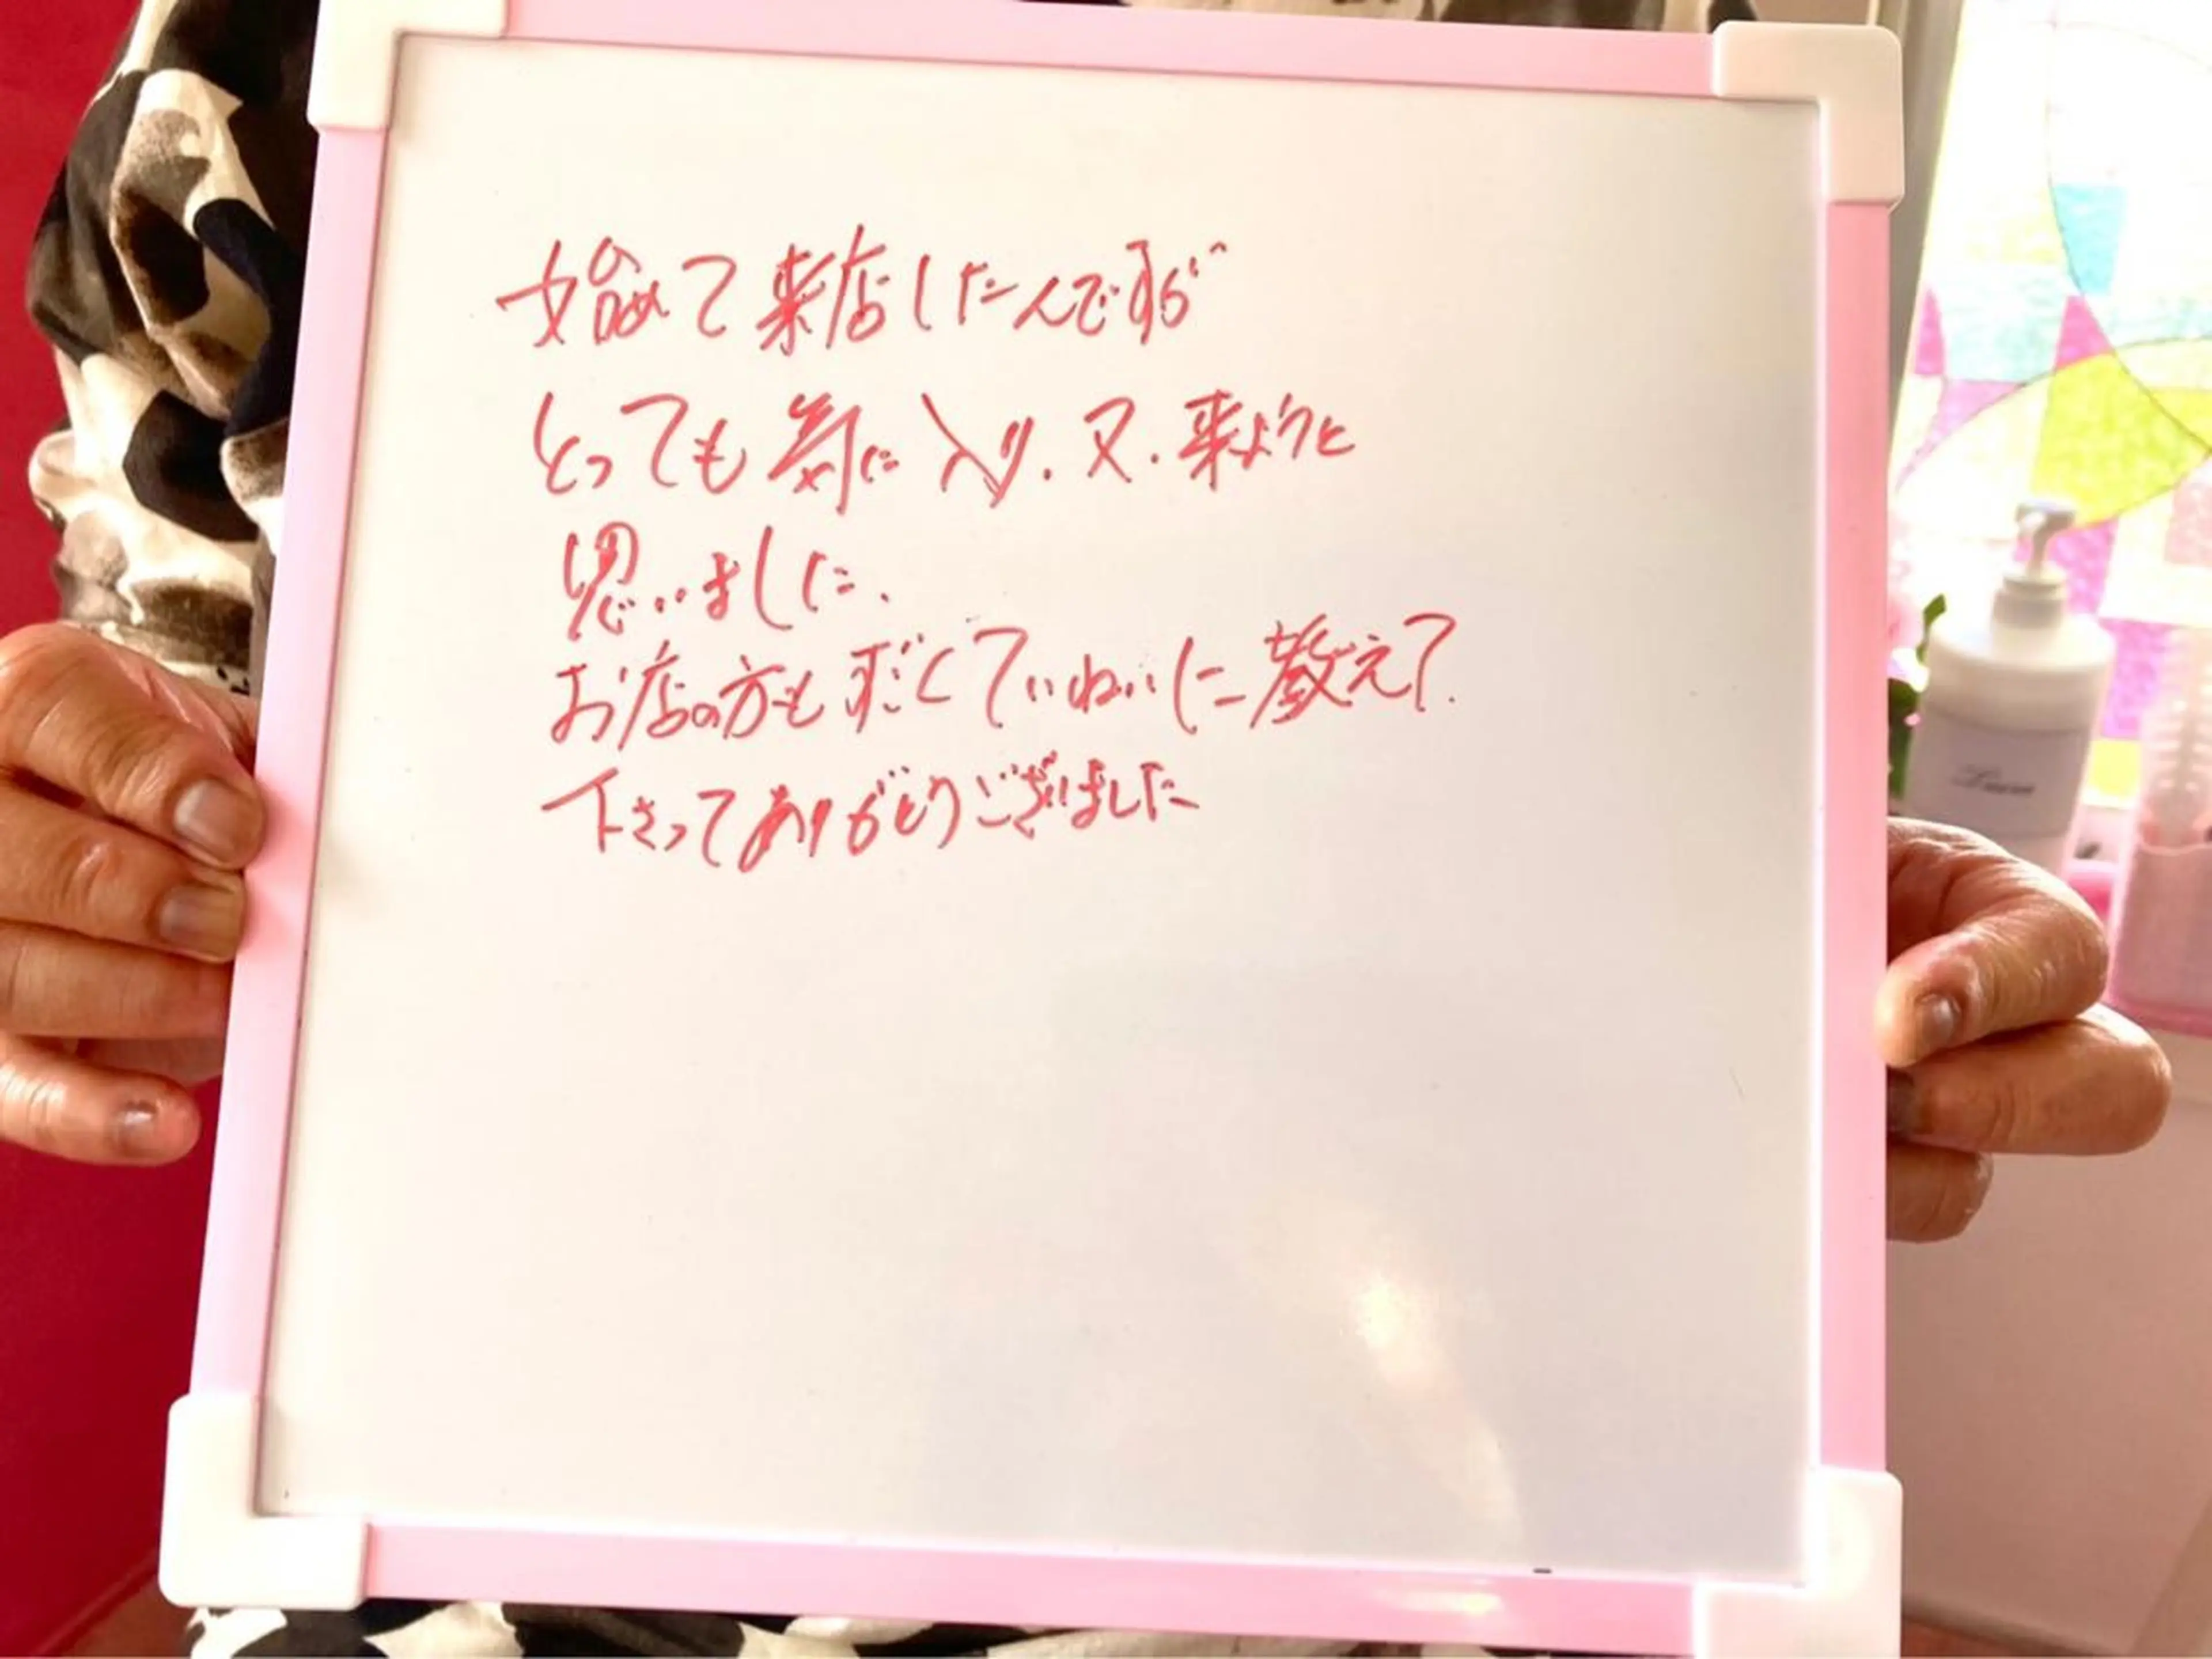 始めて来店したんですが
とっても気に入り.又.来ようと
思いました.
お店の方もすごくていねいに教えて.
下さってありがとうございました